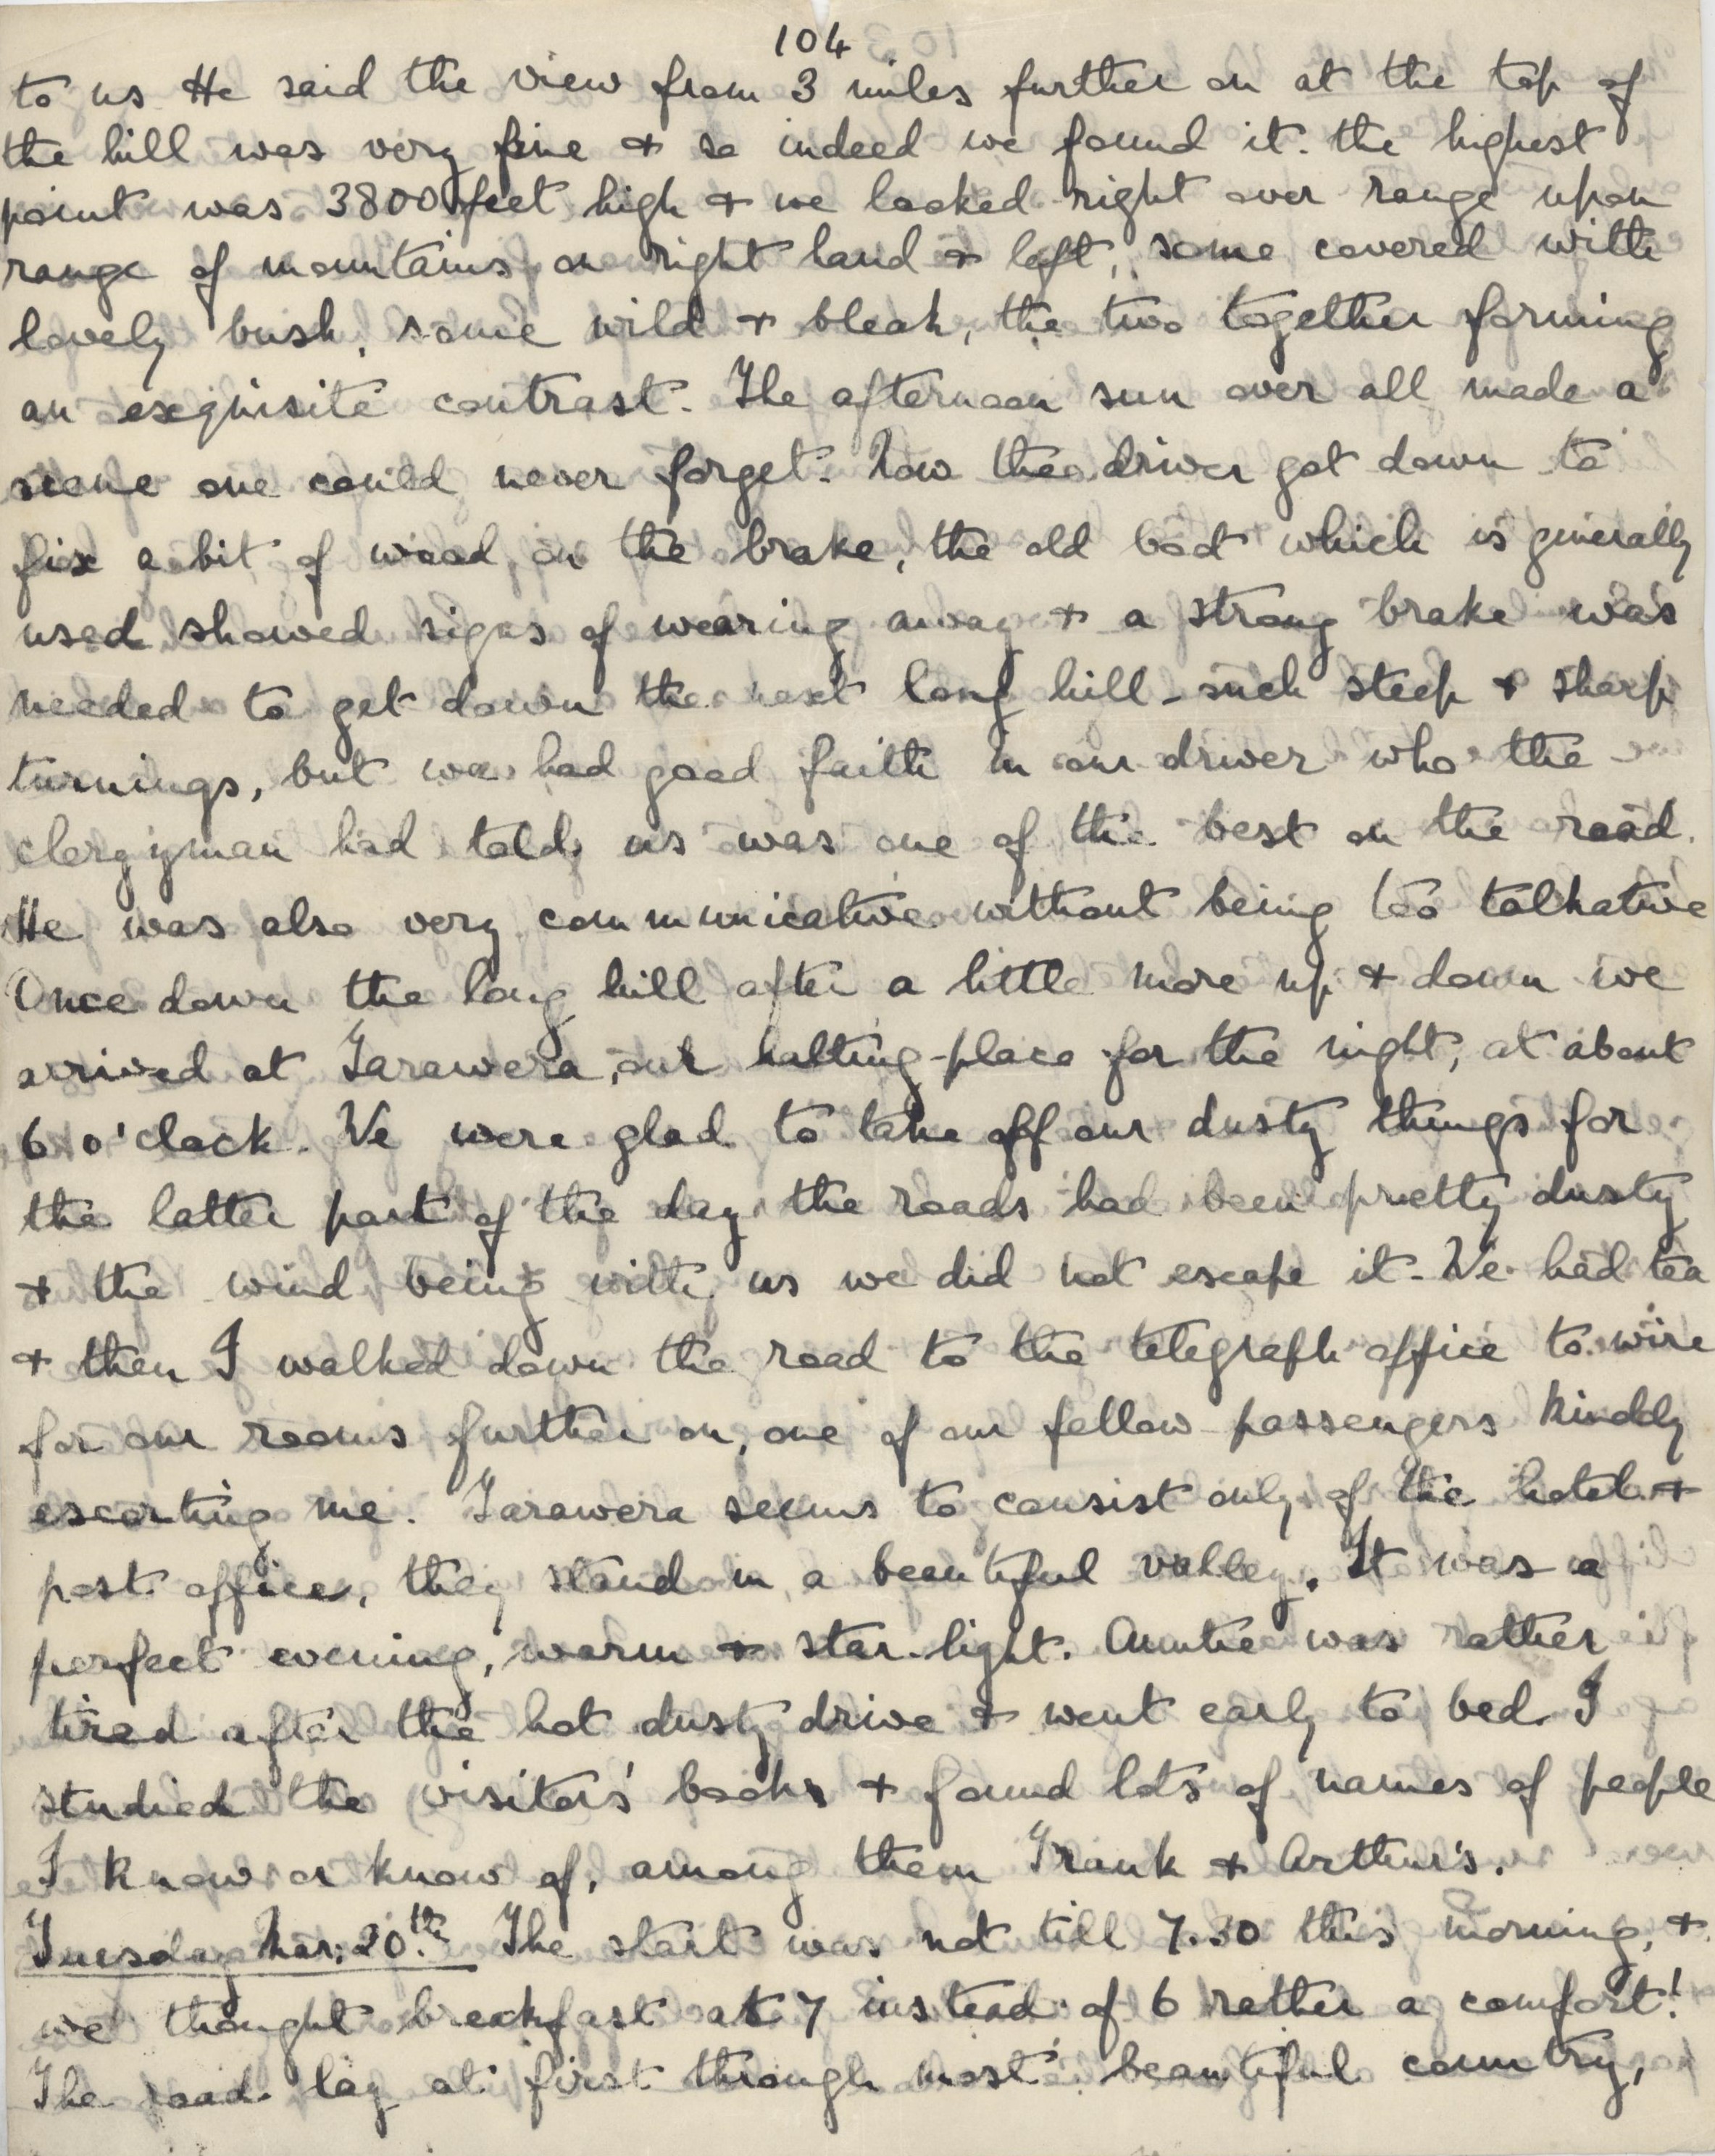 104
to us He said the view from 3 miles further on at the top of
the hill was very fine & so indeed we found it. the highest
point was 3800 feet high & we looked right over range upon
range of mountains on right hand & left, some covered with
lovely bush, some wild & bleak, the two together forming
an exquisite contrast. The afternoon sun over all made a
scene one could never forget. Now the driver got down to
fix a bit of wood on the brake, the old boot which is generally
used showed signs of wearing away & a strong brake was
needed to get down the next long hill - such steep & sharp
turnings, but we had good faith in our driver who the
clergyman had told us was one of the best on the road.
He was also very communicative without being too talkative
Once down the long hill after a little more up & down we
arrived at Tarawera, our halting-place for the night, at about
6 o'clock. We were glad to take off our dusty things for
the latter part of the day the roads had been pretty dusty
& the wind being with us we did not escape it - We had tea
& then I walked down the road to the telegraph office to wire
for our rooms further on, one of our fellow-passengers kindly
escorting me. Tarawera seems to consist only of the hotel &
post office, they stand in a beautiful valley. It was a
perfect evening, warm & star-light. Auntie was rather
tired after the hot dusty drive & went early to bed. I
studied the visitors' books & found lots of names of people
I know or know of, among them Frank & Arthur's.
Tuesday Mar: 20th. The start was not till 7.30 this morning, &
we thought breakfast at 7 instead of 6 rather a comfort!
The road lay at first through most beautiful country,